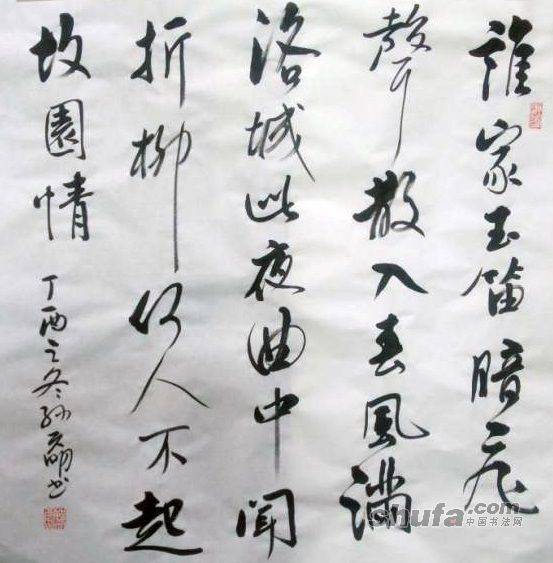 誰家玉笛暗飛
聲散入春風滿
洛城此夜曲中聞
折柳何人不起
故園情
丁酉之冬孙明书
shufa.com
中国书法网